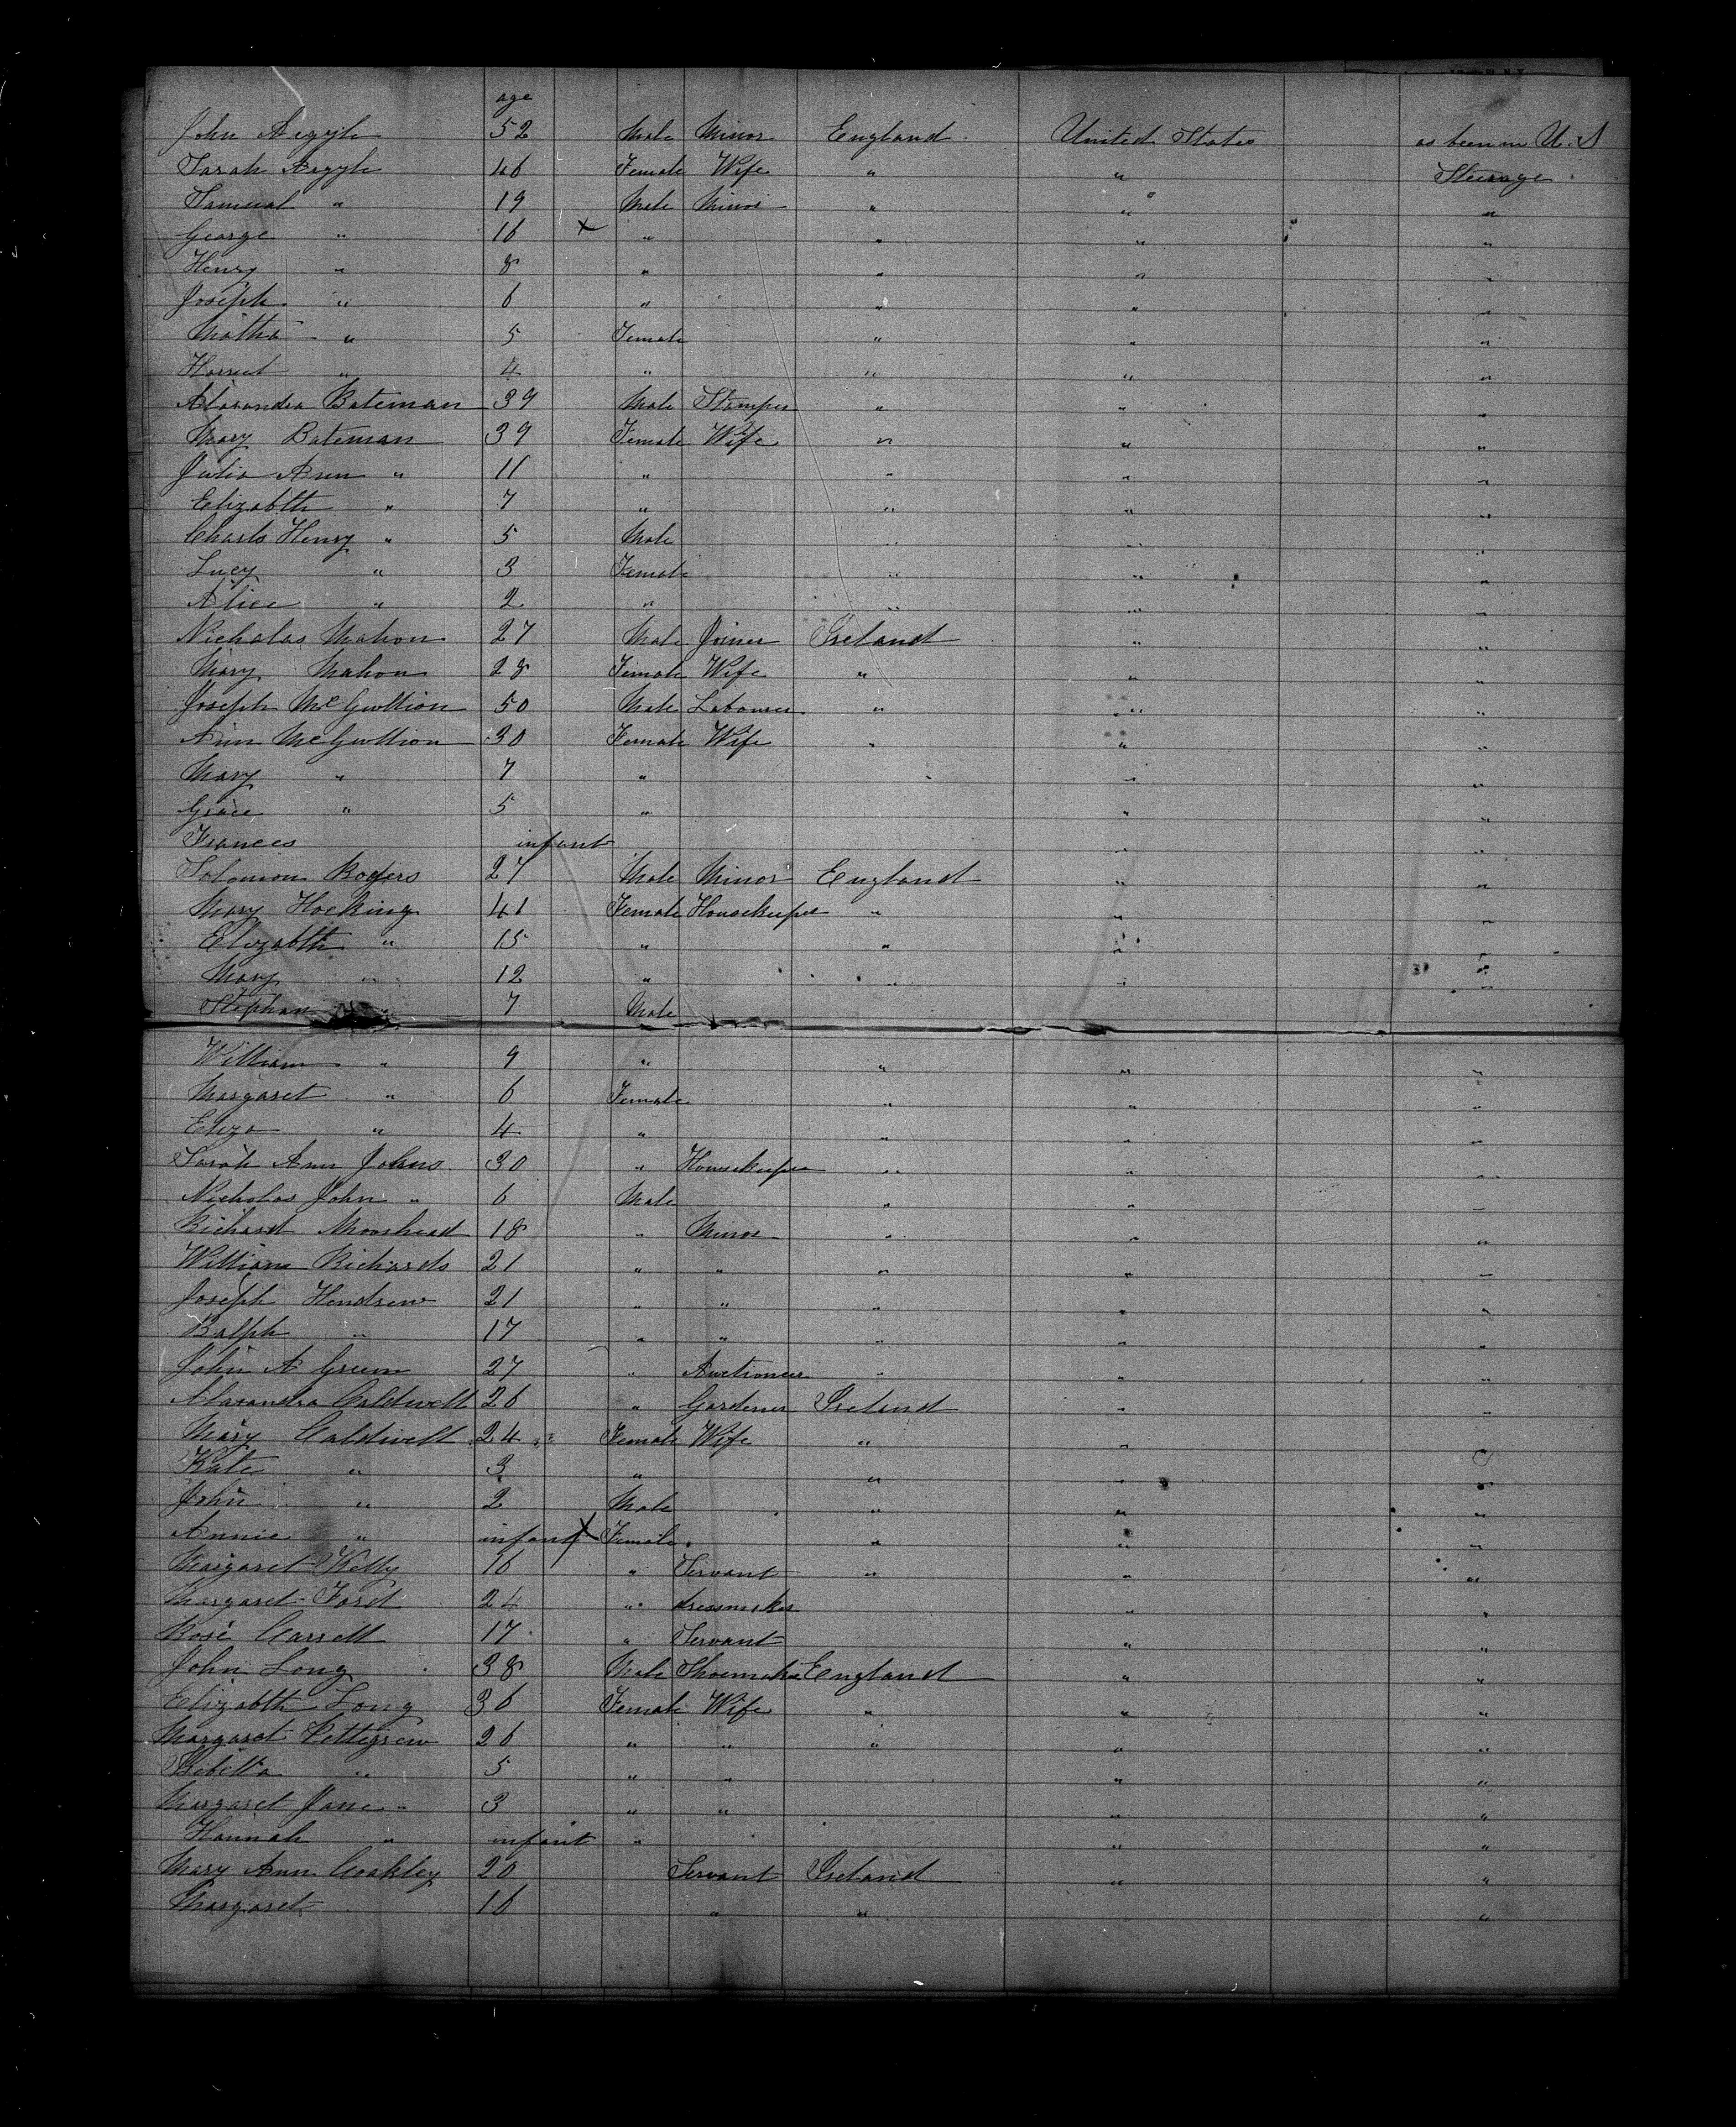 age
John Argyle 52 Male Minor England United States as been in U.S
Sarah Argyle 46 Female Wife " " Steerage
Samual " 19 Male Minor " " "
George " 16 x " " " "
Henry " 8 " " " "
Joseph " 6 " " " "
Matha " 5 Female " " "
Harriet " 4 " " " "
Alaxandra Bateman 39 Male Stamper " " "
Mary Bateman 39 Female Wife " " "
Julia Ann " 11 " " " "
Elizabth " 7 " " " "
Charls Henry " 5 Male " " "
Lucy " 3 Female " " "
Alice " 2 " " " "
Nicholas Mahon 27 Male Joiner Ireland " "
Mary Mahon 28 Female Wife " " "
Joseph 50 Male Labourer " " "
Ann 30 Female Wife " " "
Mary " 7 " " "
Grace " 5 " " "
Frances infant " "
Solomon Rogers 27 Male Minor England " "
Mary Hocking 41 Female Housekeeper " " "
Elizabth " 15 " " " "
Mary " 12 " " " "
Stephan " 7 Male "
William " 9 " " " "
Margaret " 6 Female " " "
Eliza " 4 " " " "
Sarah Ann Johns 30 " Housekeeper " " "
Nicholas John " 6 Male " " "
Richard Moorhead 18 " Minor " " "
William Richards 21 " " " " "
Joseph Hendrew 21 " " " " "
Ralph " 17 " " " " "
John A Green 27 " Auctioneer " " "
Alaxandra Caldwell 26 " Gardener Ireland " "
Mary Caldwell 24 Female Wife " " "
Kate " 3 " " " "
John " 2 Male " " "
Annie " infant x Female " " "
Margaret Kelly 16 " Servant " " "
Margaret Ford 24 " dressmaker " "
Rose 17 " Servant " "
John Long 38 Male Shoemaker England " "
Elizabth Long 36 Female Wife " " "
Margaret Pettigrew 26 " " " " "
5 " " " "
Margaret Jane " 3 " " " "
Hannah " infant " " "
Mary Ann Coakley 20 Servant Ireland " "
Margaret 16 " " "